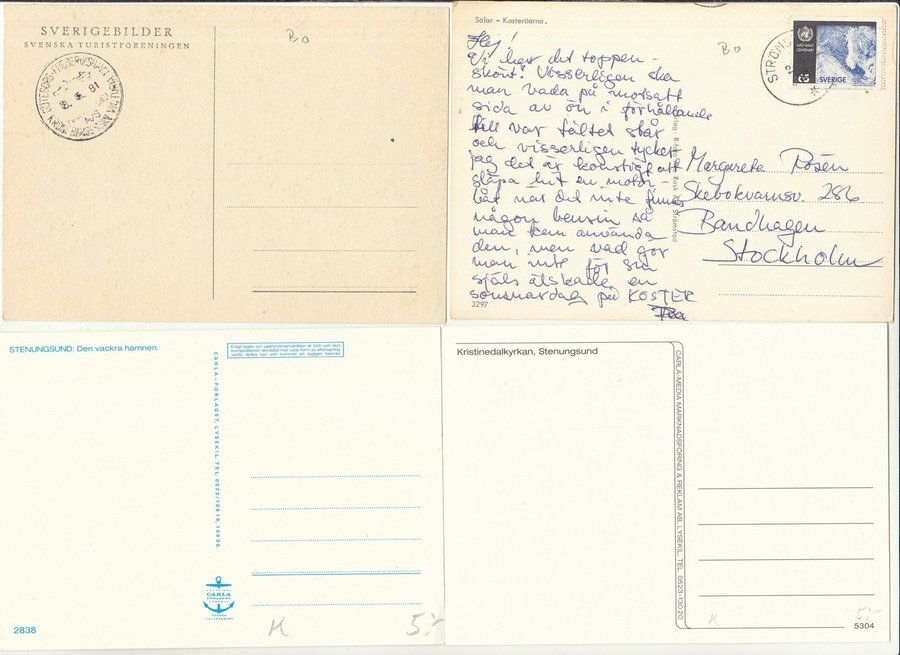 SVERIGEBILDER
SVENSKA TURISTFÖRENINGEN
BO
Sälar - Kosteröarna.
BO
STRÖMS
SVERIGE
65
Hej!
Vi har det toppen-
skönt! Visserligen ska
man vada på motsatt
sida av ön i förhållande
till var tältet står
och visserligen tycker
jag det är konstigt att
släpa hit en motor-
båt när det inte finns
någon bensin så
man kan använda
den, men vad gör
man inte för sin
själs älskade en
sommardag på KOSTER
Margareta Rosén
Skebokvarnsv. 286
Bandhagen
Stockholm
3297
STENUNGSUND: Den vackra hamnen.
CARLA-FÖRLAGET, LYSEKIL, TEL. 0523/109 19, 109 09.
CARLA
FÖRLAGET
2838
K
5:-
Kristinedalkyrkan, Stenungsund
CARLA-MEDIA MARKNADSFÖRING & REKLAM AB, LYSEKIL, TEL. 0523-130 20
K
5:-
5304